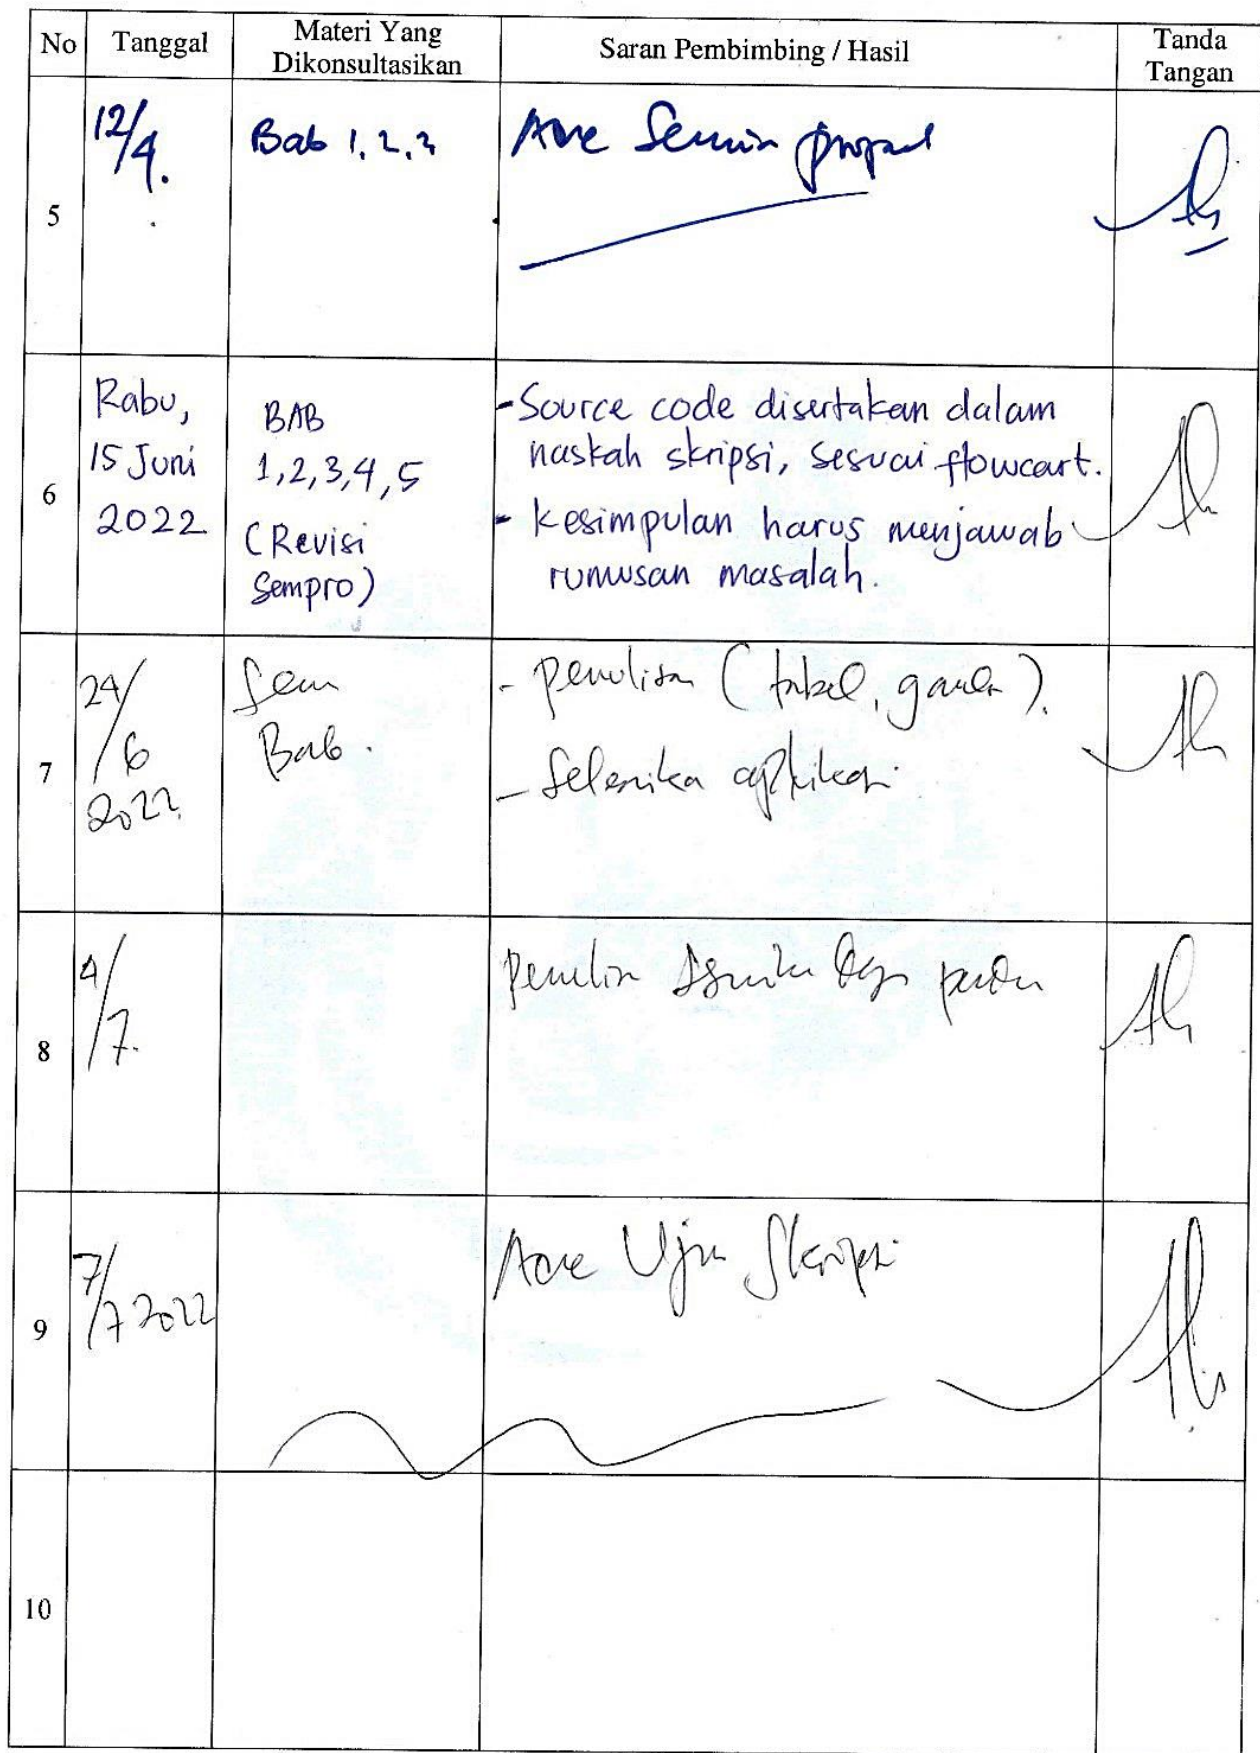 No Tanggal Materi Yang Dikonsultasikan Saran Pembimbing / Hasil Tanda Tangan
5
12/4.
Bab 1, 2, 3
Acc Semin propsl
6
Rabu,
15 Juni
2022
BAB
1,2,3,4,5
(Revisi
Sempro)
- Source code disertakan dalam
naskah skripsi, sesuai flowcart.
- Kesimpulan harus menjawab
rumusan masalah.
7
24/
6
2022
Bab.
- penulisan (tabel, gambar).
- aplikasi.
8
4/
7.
9
7/
7 2022
Acc Ujian Skripsi
10